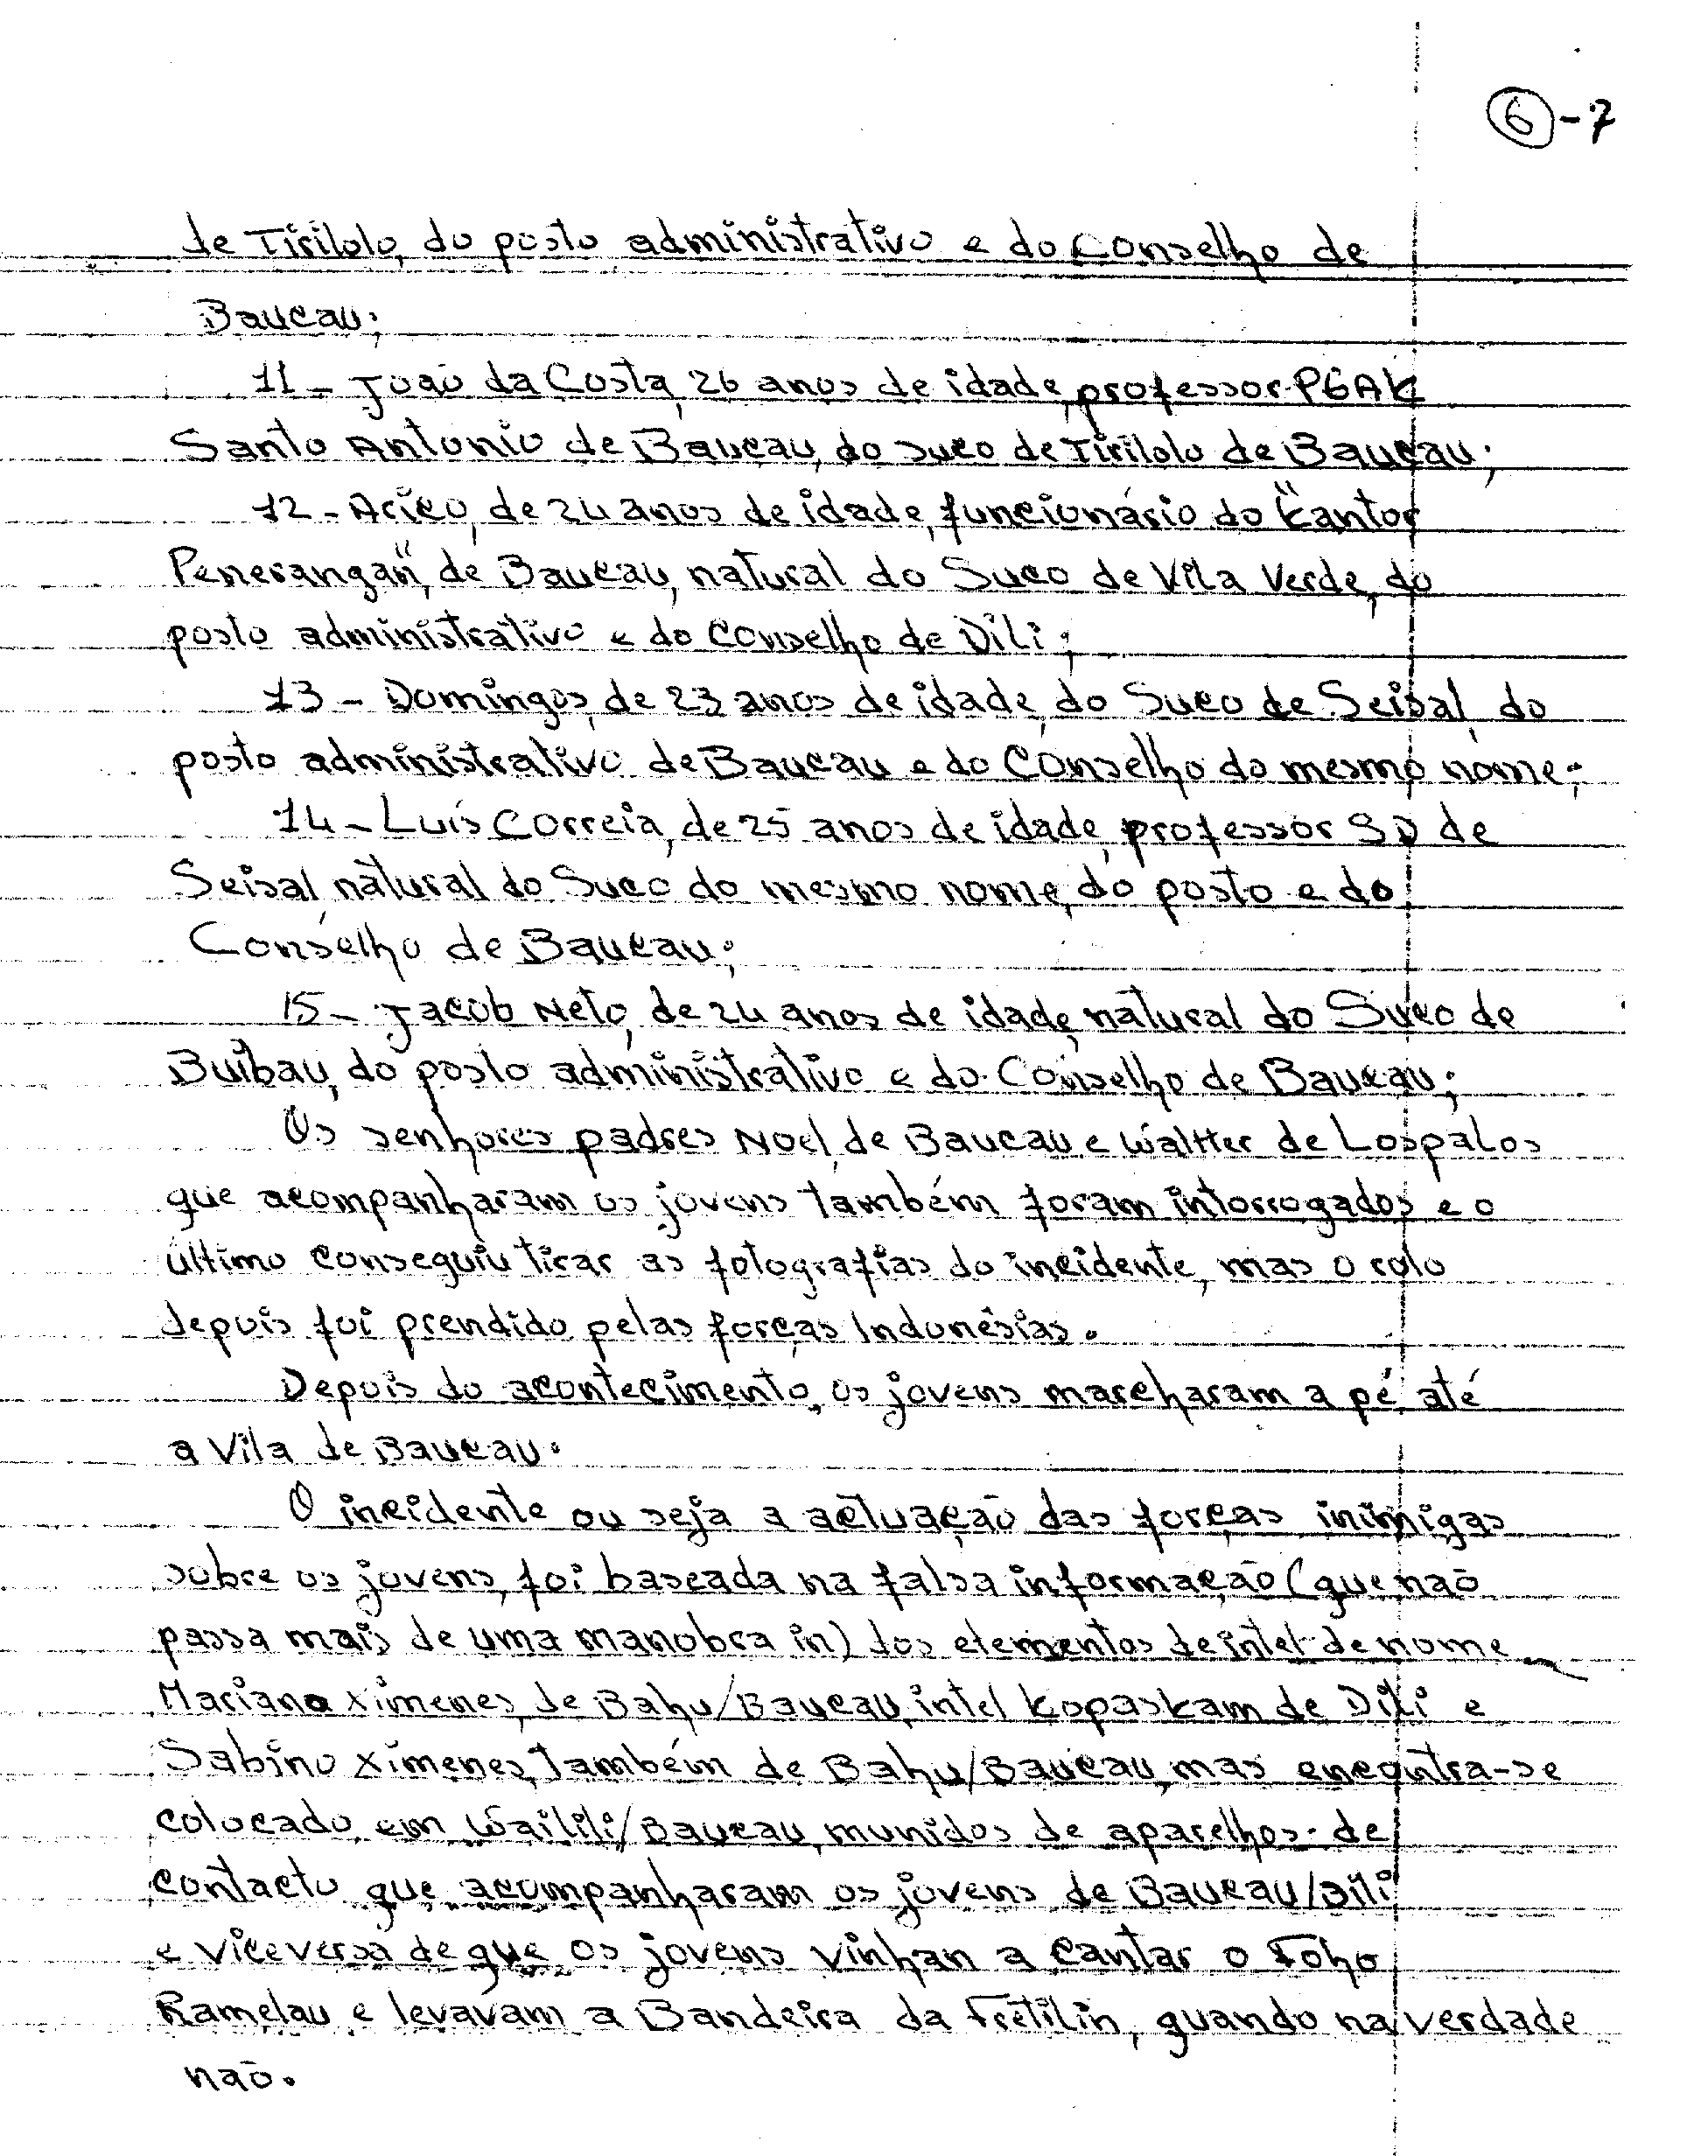 6-7
de Tirilolo, do posto administrativo e do Conselho de
Baucau;
11 - João da Costa, 26 anos de idade, professor PGAK
Santo Antonio de Baucau, do suco de Tirilolo de Baucau;
12 - Acieo, de 24 anos de idade, funcionário do "Kantor
Penerangan", de Baucau, natural do Suco de Vila Verde, do
posto administrativo e do Conselho de Dili;
13 - Domingos, de 23 anos de idade, do Suco de Seisal, do
posto administrativo de Baucau e do Conselho do mesmo nome;
14 - Luís Correia, de 25 anos de idade, professor SD de
Seisal natural do Suco do mesmo nome, do posto e do
Conselho de Baucau;
15 - Jacob Neto, de 24 anos de idade, natural do Suco de
Buibau, do posto administrativo e do Conselho de Baucau;
Os senhores padres Noel, de Baucau e Waltter de Lospalos
que acompanharam os jovens também foram intorrogados e o
último conseguiu tirar as fotografias do incidente, mas o rolo
depois foi prendido pelas forças Indonésias.
Depois do acontecimento, os jovens marcharam a pé até
a Vila de Baucau.
O incidente ou seja a actuação das forças inimigas
sobre os jovens, foi baseada na falsa informação (que não
passa mais de uma manobra in) dos elementos de intel de nome
Mariano Ximenes, de Bahu/Baucau, intel Kopaskam de Dili e
Sabino Ximenes, também de Bahu/Baucau, mas encontra-se
colocado em Wailili/Baucau, munidos de aparelhos de
contacto que acompanharam os jovens de Baucau/Dili
e viceversa de que os jovens vinhan a cantar o Foho
Ramelau e levavam a Bandeira da Fretilin, quando na verdade
não.